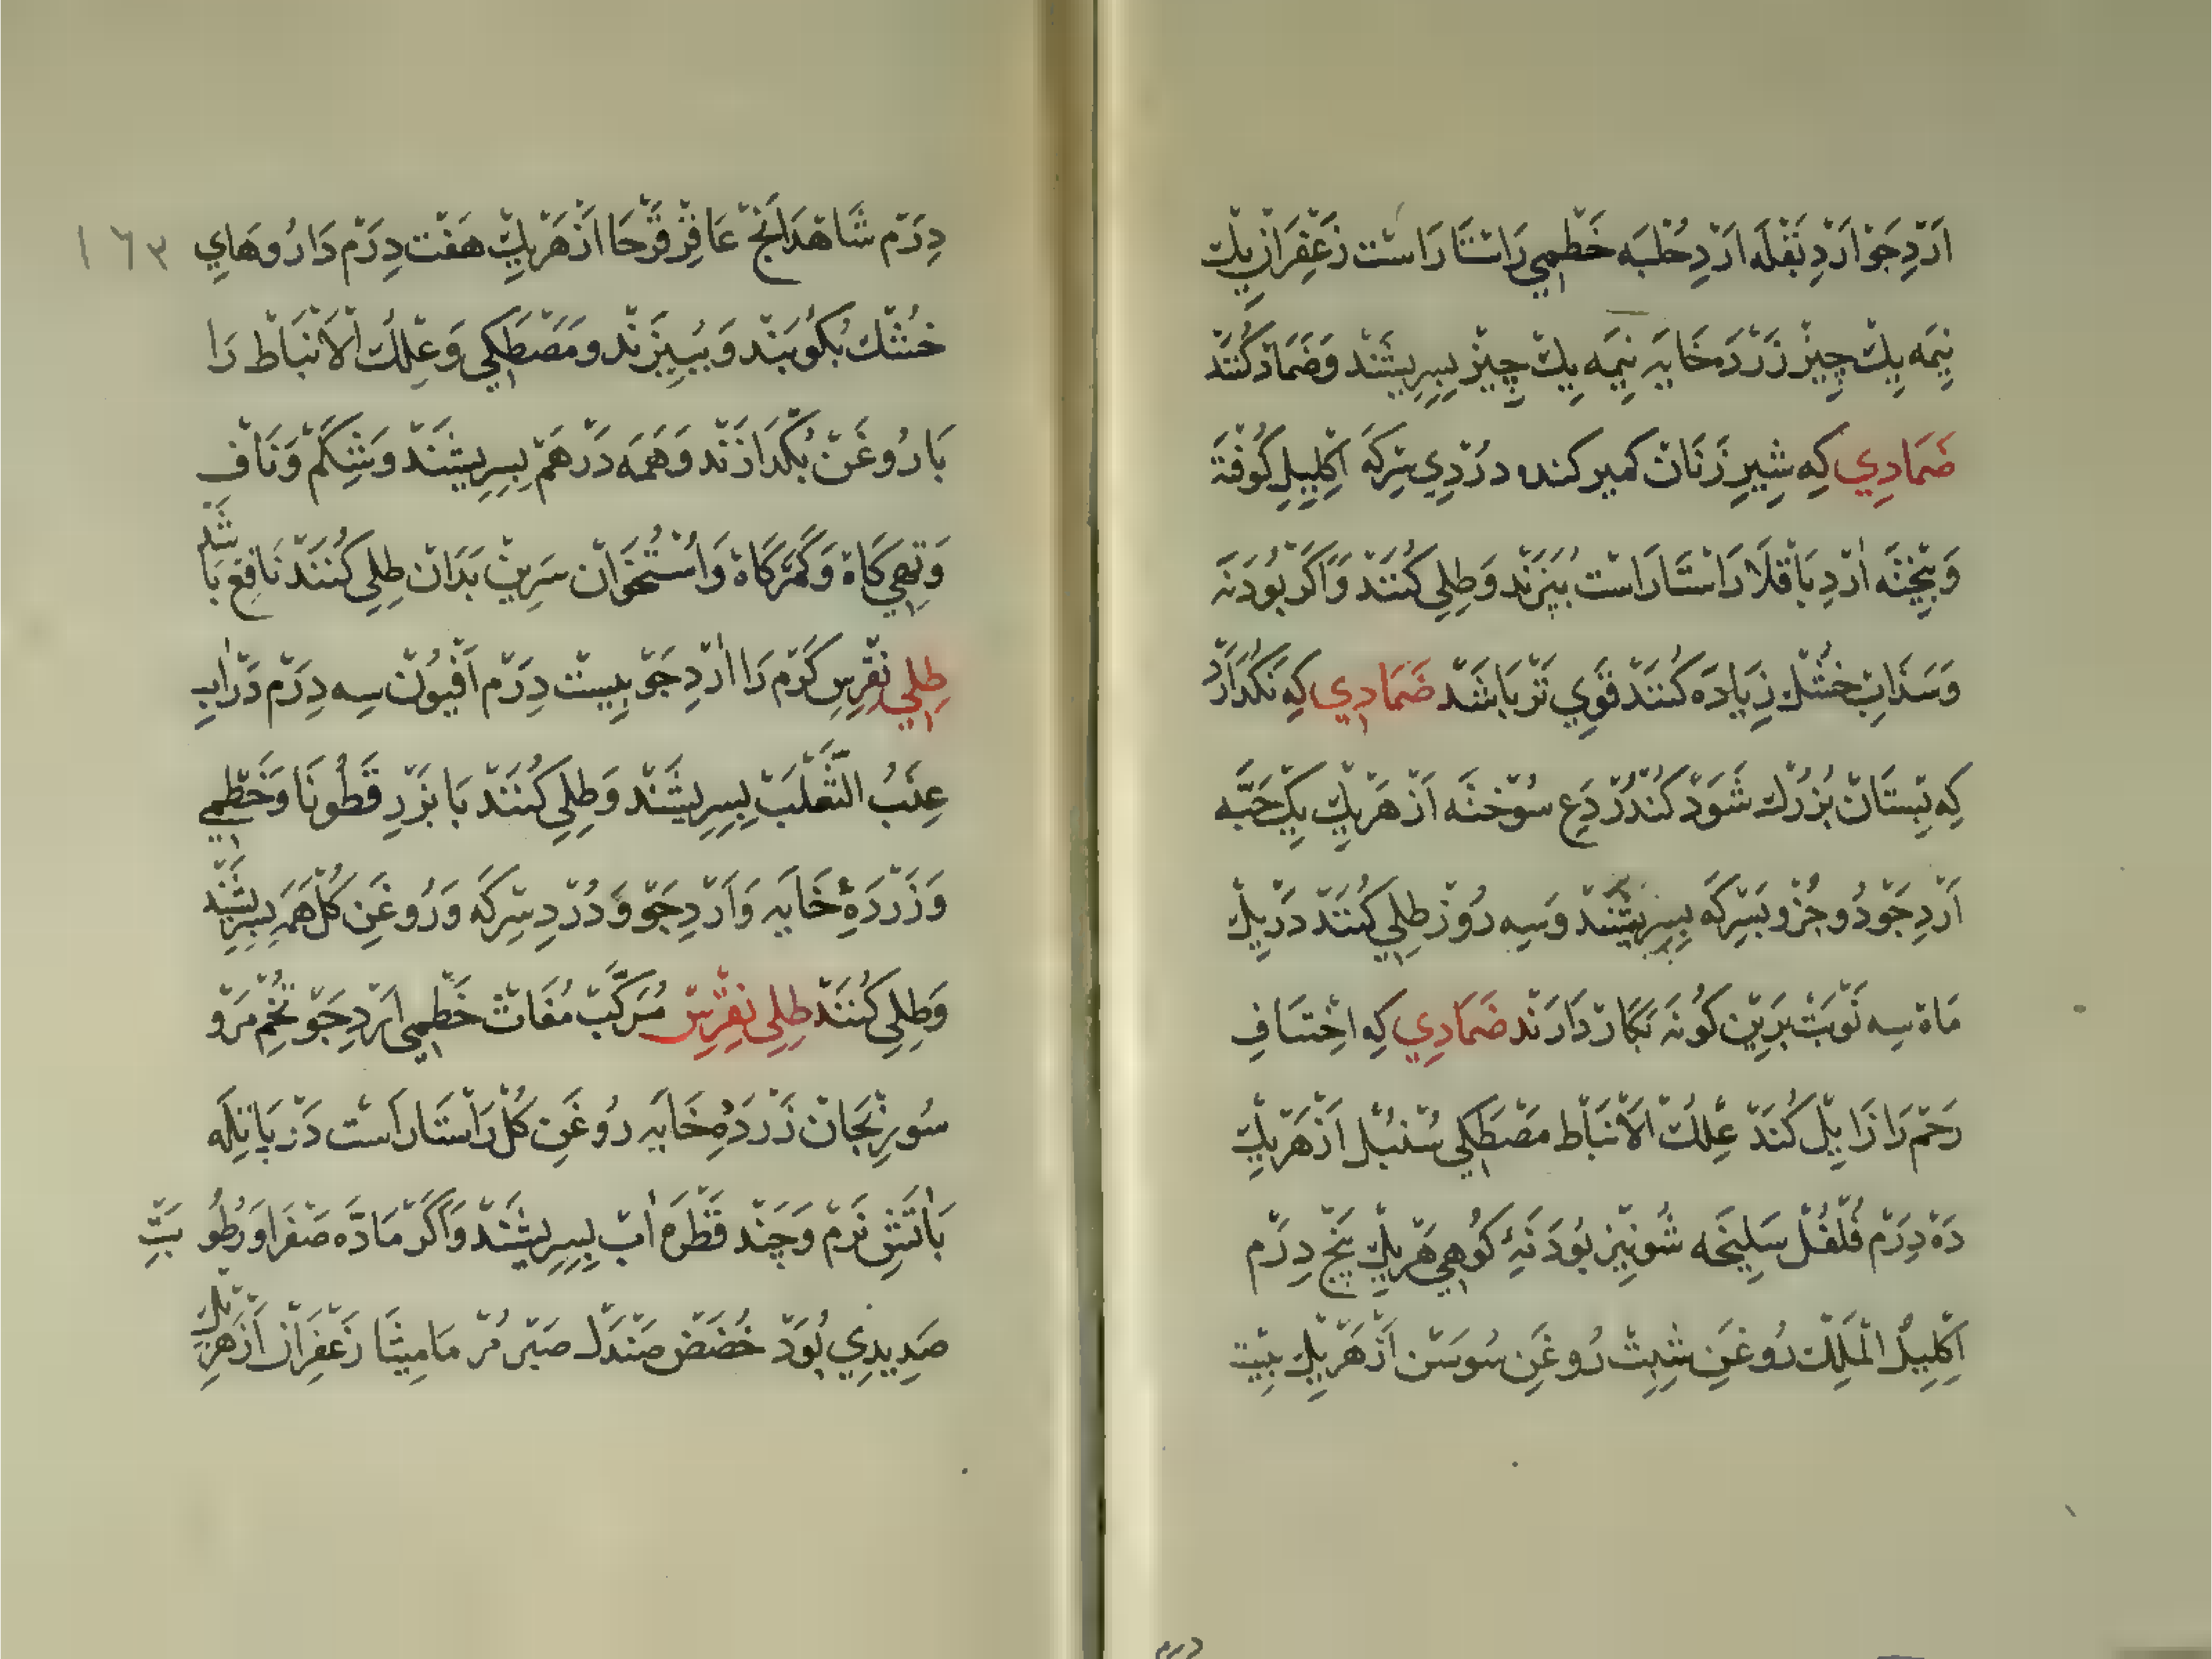 اَرْدِ جَوْ اَرْدِ بَقْلَه اَرْدِ حُلْبَه خَطْمِي رَاسْتَا رَاسْت زَعْفَرَان يِكْ
نِيمَه يِكْ چِيزْ زَرْدَه خَايَه نِيمَه يِكْ چِيزْ بِسِرِيشَنْد وَضَمَادْ كُنَنْد
ضَمَادِي كِه شِيرِ زَنَانْ كمير كنده دُرْدِي سِرْكَه اِكْلِيلِ كُوفْتَه
وَبِيخْتَه اَرْدِ بَاقْلَا رَاسْتَا رَاسْت بِپَزَنْد وَطِلِي كُنَنْد وَاَگَرْ بُودَنَه
وَسَذَابِ خُشْك زِيَادَه كُنَنْد قَوِي تَرْ بَاشَدْ ضَمَادِي كِه نَگُذَارَدْ
كِه پِسْتَانْ بُزُرْك شَوَدْ كُنْدُرْ وَدَع سُوْخْتَه اَزْ هَرْ يِكْ يِكْ حَبَّه
اَرْدِ جَوْ دُو جُزْو بَسِرْكَه بِسِرِيشَنْد وَسِه رُوزْ طِلِي كُنَنْد دَرْ يِكْ
مَاه سِه نَوْبَتْ بَرِينْ گُونَه بَكَارْ دَارَنْد ضَمَادِي كِه اخْتِنَاقِ
رَحِمْ رَا زَايِلْ كُنَدْ عِلْكُ الْاَنْبَاطْ مَصْطَكِي سُنْبُلْ اَزْ هَرْ يِكْ
دَه دِرَمْ فُلْفُلْ سَلِيخَه شُونِيزْ بُودَنَهٔ كُوهِي هَرْ يِكْ پَنْج دِرَمْ
اِكْلِيلُ الْمَلِكْ رُوغَنِ شِبِثْ رُوغَنِ سُوسَنْ اَزْ هَرْ يِكْ بِيسْت
درم
١٦٣
دِرَمْ شَاهْدَانَجْ عَاقِرْقَرْحَا اَزْ هَرْ يِكْ هَفْت دِرَمْ دَارُوهَايِ
خُشْك بُكُوبَنْد وَبِبِيزَنْد وَمَصْطَكِي وَعِلْكُ الْاَنْبَاطْ رَا
بَا رُوغَنْ بُگْدَازَنْد وَهَمَه دَرْهَمْ بِسِرِيشَنْد وَشِكَمْ وَنَافِ
وَتِهِي گَاه وَكَمَرْگَاه وَاُسْتُخْوَانِ سَرِينْ بَدَانْ طِلِي كُنَنْد نَافِعْ بَاشَدْ
طِلِي نِقْرِسِ گَرْم رَا اَرْدِ جَوْ بِيسْت دِرَمْ اَفْيُونْ سِه دِرَمْ دَرْ اَبِ
عِنَبُ الثَّعْلَبْ بِسِرِيشَنْد وَطِلِي كُنَنْد بَا بَزْرِ قَطُونَا وَخَطْمِي
وَزَرْدَهٔ خَايَه وَاَرْدِ جَوْ وَدُرْدِ سِرْكَه وَرُوغَنِ گُلْ هَمَه بِسِرِيشَنْد
وَطِلِي كُنَنْد طِلِي نِقْرِسْ مُرَكَّبْ مُغَاثْ خَطْمِي اَرْدِ جَوْ تُخْمِ مَرْو
سُورِنْجَانْ زَرْدَهٔ خَايَه رُوغَنِ گُلْ رَاسْتَا رَاسْت دَرْ پَاتِيلَه
بَاتَشِ نَرْمْ وَچَنْد قَطْرَه اَبْ بِسِرِيشَنْد وَاَگَرْ مَادَّه صَفْرَا وَرُطُوبَتِ
صَدِيدِي بُوَدْ حُضَضْ صَنْدَلْ صَبْر مُرّ مَامِيثَا زَعْفَرَانْ اَزْ هَرْ يِكْ